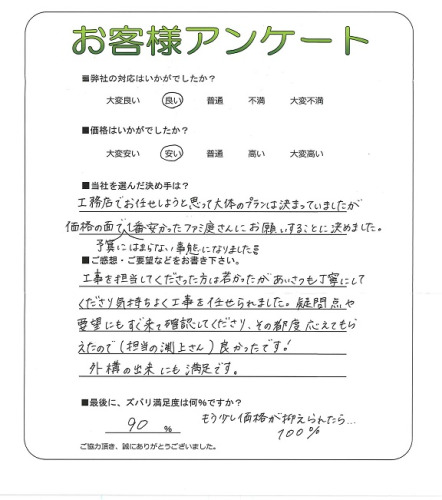 お客様アンケート
■弊社の対応はいかがでしたか?
大変良い 良い 普通 不満 大変不満
■価格はいかがでしたか?
大変安い 安い 普通 高い 大変高い
■当社を選んだ決め手は?
工務店でお任せしようと思って大体のプランは決まっていましたが
価格の面で1番安かったファミ庭さんにお願いすることに決めました。
予算にはまらない事態になりました
■ご感想・ご要望などをお書き下さい。
工事を担当してくださった方は若かったがあいさつも丁寧にして
くださり気持ちよく工事を任せられました。疑問点や
要望にもすぐ来て確認してくださり、その都度応えてもら
えたので(担当の渕上さん)良かったです!
外構の出来にも満足です。
■最後に、ズバリ満足度は何%ですか?
90 %
もう少し価格が抑えられたら…
100%
ご協力頂き、誠にありがとうございました。